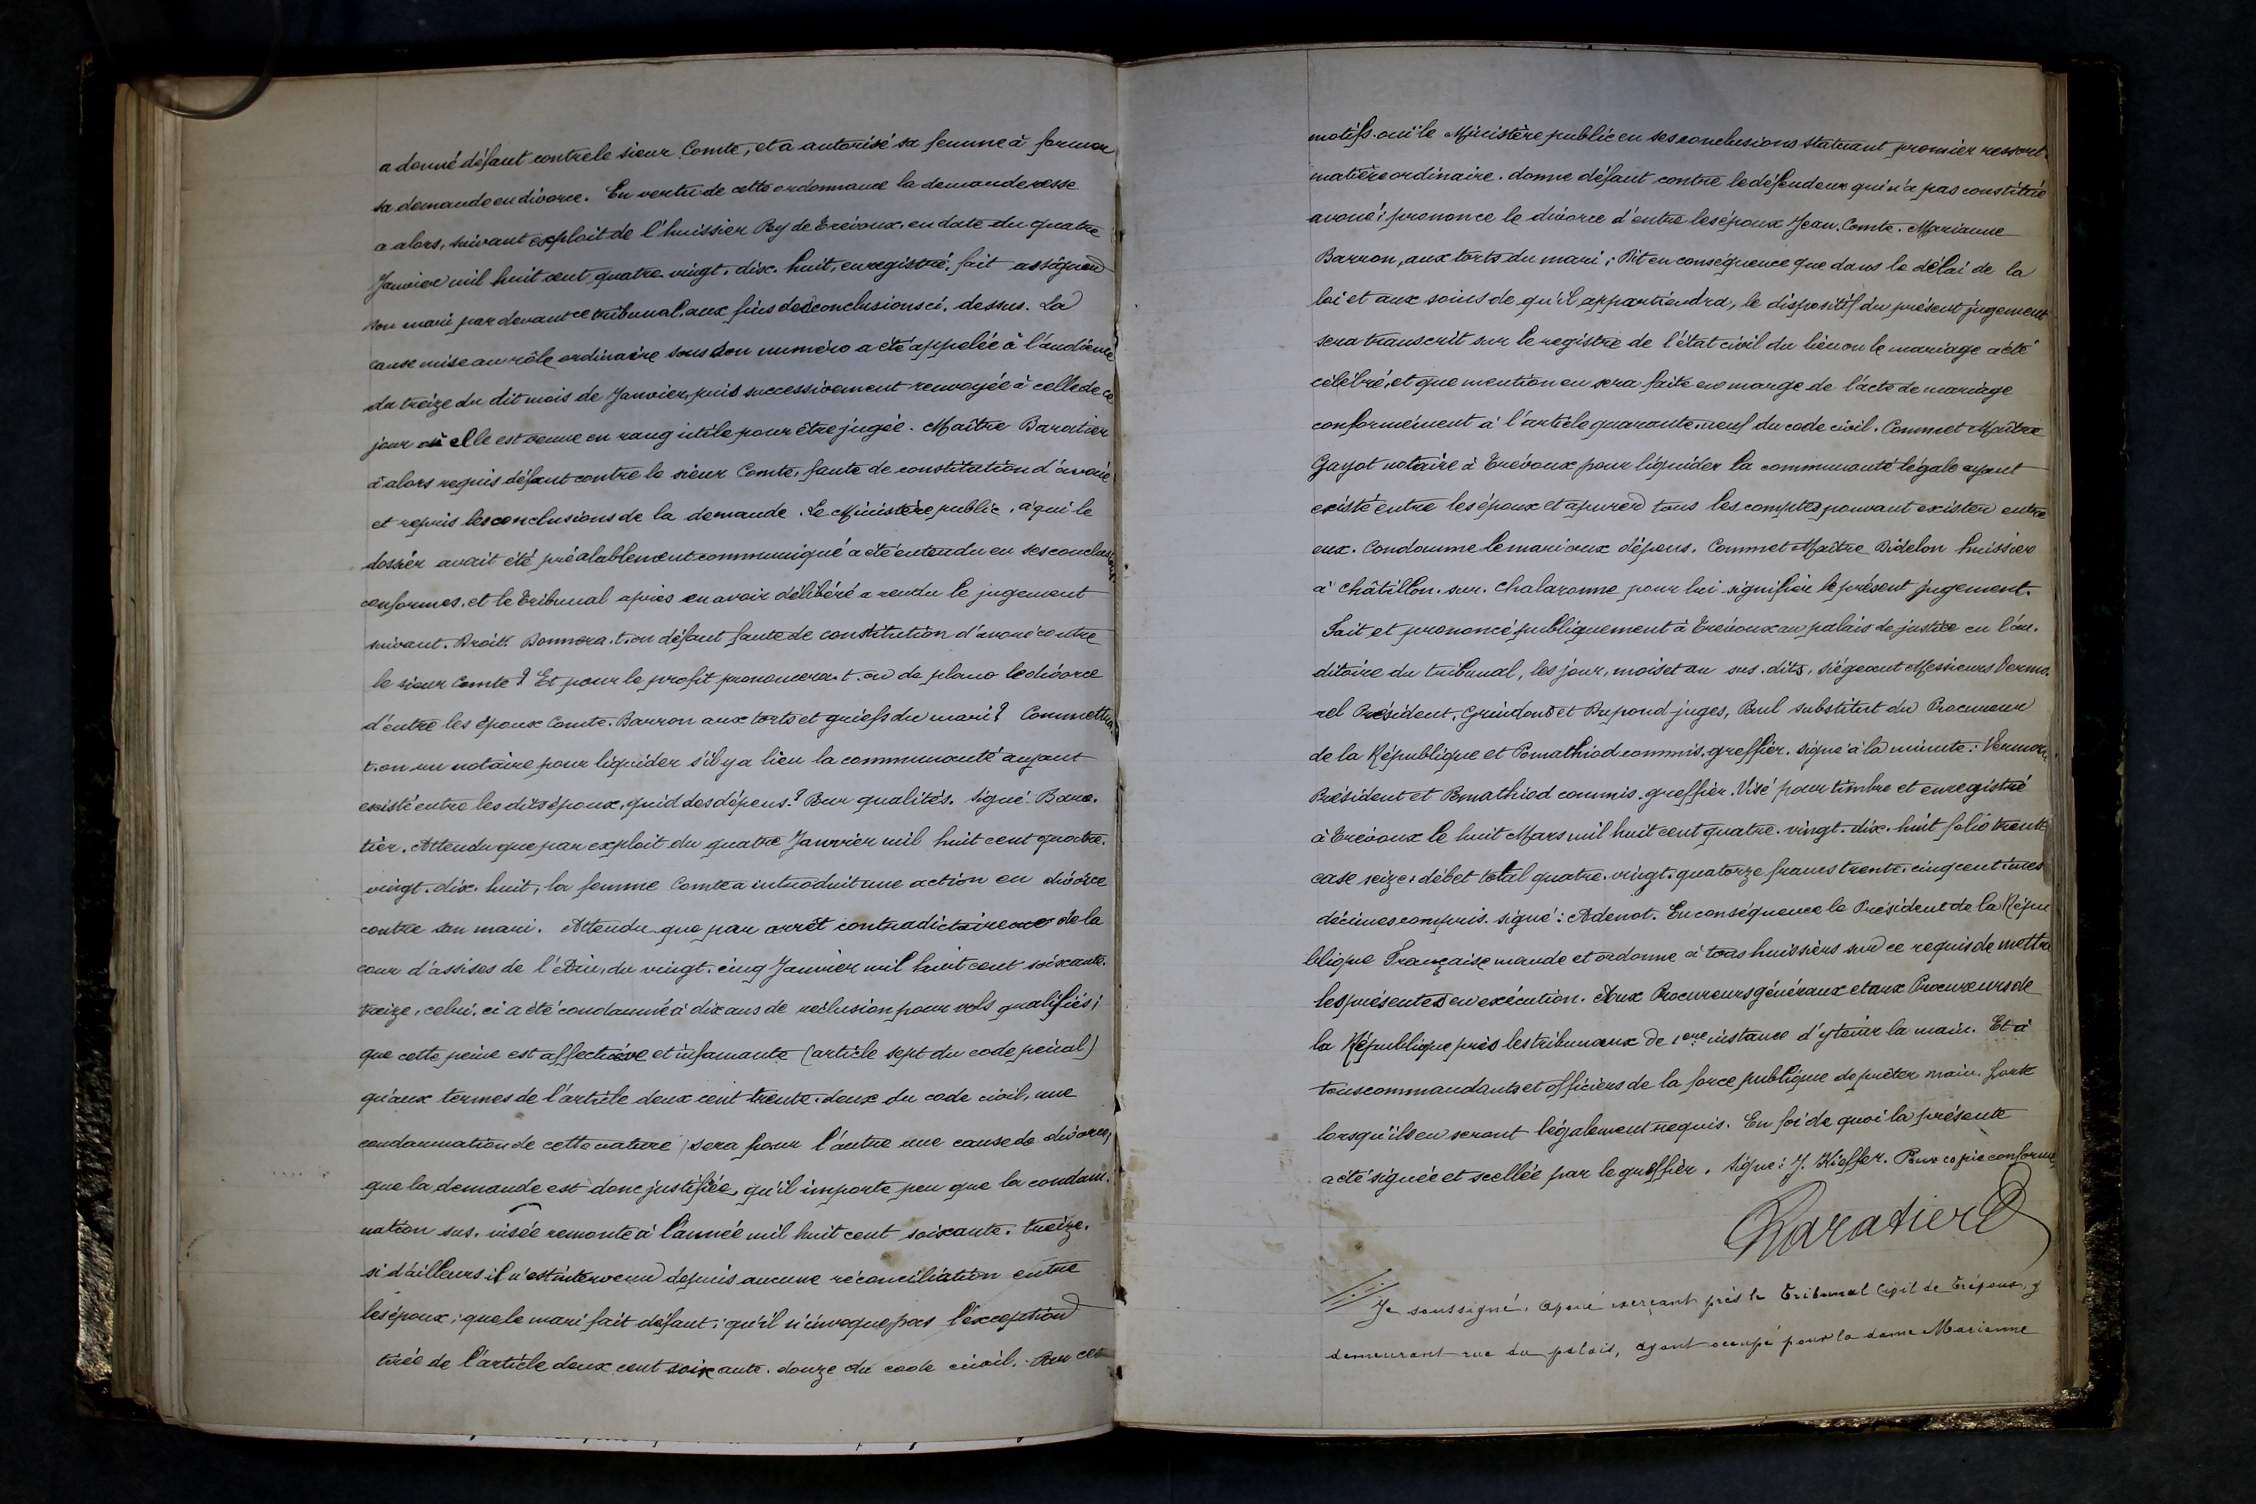 a donné défaut contre le sieur Comte, et a autorisé sa femme à former
sa demande en divorce. En vertu de cette ordonnance la demanderesse
a alors, suivant exploit de l'huissier Rey de Trévoux, en date du quatre
Janvier mil huit cent quatre-vingt-dix-huit, enregistré, fait assigner
son mari par devant ce tribunal, aux fins des conclusions ci-dessus. La
cause mise au rôle ordinaire sous son numéro a été appelée à l'audience
du treize du dit mois de Janvier, puis successivement renvoyée à celle de ce
jour où elle est venue en rang utile pour être jugée. Maître Baratier
a alors requis défaut contre le sieur Comte, faute de constitution d'avoué
et repris les conclusions de la demande. Le Ministère public, à qui le
dossier avait été préalablement communiqué a été entendu en ses conclusions
conformes, et le tribunal après en avoir délibéré a rendu le jugement
suivant. Droit. Donnera-t-on défaut faute de constitution d'avoué contre
le sieur Comte? Et pour le profit prononcera-t-on de plano le divorce
d'entre les époux Comte-Barron aux torts et griefs du mari? Commettra-
t-on un notaire pour liquider s'il y a lieu la communauté ayant
existé entre les dits époux, quid des dépens? Pour qualités. Signé Bara-
tier. Attendu que par exploit du quatre Janvier mil huit cent quatre-
vingt-dix-huit, la femme Comte a introduit une action en divorce
contre son mari. Attendu que par arrêt contradictoire de la
cour d'assises de l'Ain, du vingt-cinq Janvier mil huit cent soixante-
treize, celui-ci a été condamné à dix ans de réclusion pour vols qualifiés;
que cette peine est afflictive et infamante (article sept du code pénal)
qu'aux termes de l'article deux cent trente-deux du code civil, une
condamnation de cette nature sera pour l'autre une cause de divorce,
que la demande est donc justifiée, qu'il importe peu que la condam-
nation sus-visée remonte à l'année mil huit cent soixante-treize.
si d'ailleurs il n'est intervenu depuis aucune réconciliation entre
les époux; que le mari fait défaut; qu'il n'invoque pas l'exception
tirée de l'article deux cent soixante-douze du code civil. Par ces
motifs. ouï le Ministère public en ses conclusions statuant premier ressort.
matière ordinaire. donne défaut contre le défendeur qui n'a pas constitué
avoué; prononce le divorce d'entre les époux Jean Comte-Marianne
Barron, aux torts du mari; Dit en conséquence que dans le délai de la
loi et aux soins de qu'il appartiendra, le dispositif du présent jugement
sera transcrit sur le registre de l'état civil du lieu ou le mariage a été
célébré, et que mention en sera faite en marge de l'acte de mariage
conformément à l'article quarante-neuf du code civil. Commet Maître
Gayot notaire à Trévoux pour liquider la communauté légale ayant
existé entre les époux et apurer tous les comptes pouvant exister entre
eux. Condamne le mari aux dépens. Commet Maître Didelon huissier
à Châtillon-sur-Chalaronne pour lui signifier le présent jugement.
Fait et prononcé publiquement à Trévoux au palais de justice en l'au-
ditoire du tribunal, les jour, mois et an sus-dits, siégeant Messieurs Vermo-
rel Président, Grindon et Dupond juges, Paul substitut du Procureur
de la République et Pomathiod commis-greffier. Signé à la minute: Vermorel
Président et Pomathiod commis-greffier. Visé pour timbre et enregistré
à Trévoux le huit Mars mil huit cent quatre-vingt-dix-huit folio trente
case seize, débet total quatre-vingt-quatorze francs trente-cinq centimes
décimes compris. signé: Adenot. En conséquence le Président de la Répu-
blique Française mande et ordonne à tous huissiers sur ce requis de mettre
les présentes en exécution. Aux Procureurs généraux et aux Procureurs de
la République près les tribunaux de 1ère instance d'y tenir la main. Et à
tous commandants et officiers de la force publique de prêter main-forte
lorsqu'ils en seront légalement requis. En foi de quoi la présente
a été signée et scellée par le greffier. Signé: J. Kieffer. Pour copie conforme
Baratier
Je soussigné, avoué exerçant près le Tribunal Civil de Trévoux, y
demeurant rue du palais, ayant occupé pour la dame Marianne